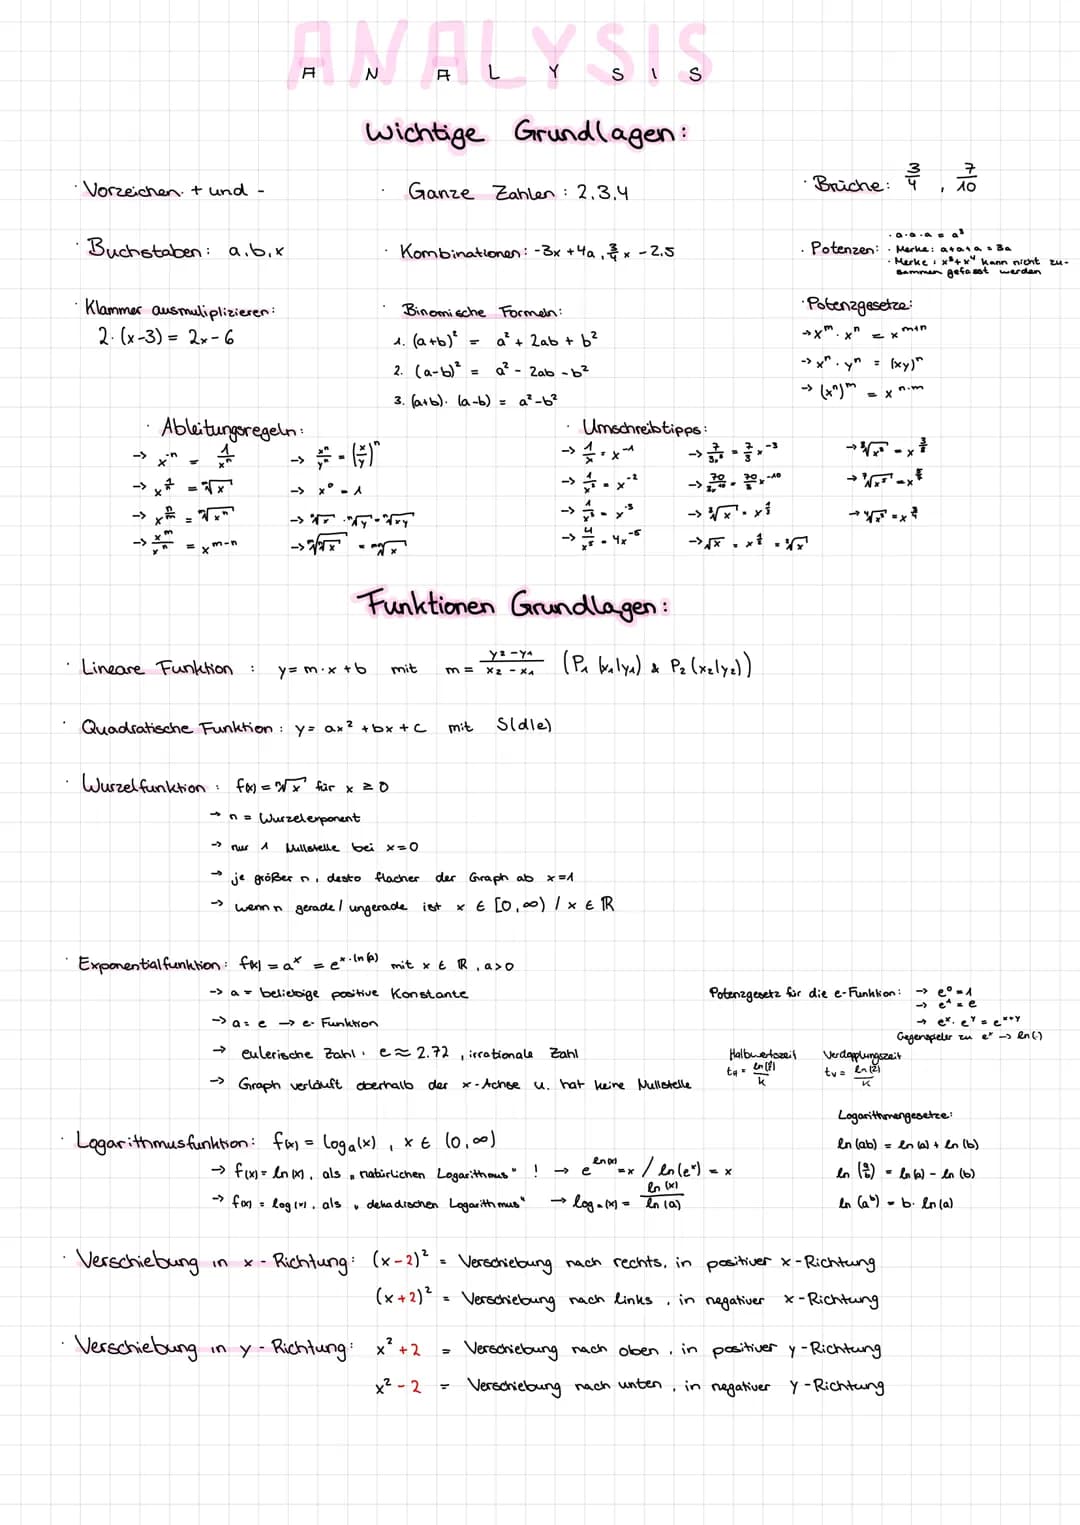 ANALYSIS
A N A L Y S I S
Wichtige Grundlagen:
· Vorzeichen. + und -
· Ganze Zahlen : 2,3,4
· Brüche: 3/4 , 7/10
· Buchstaben: a,b,x
· Kombinationen: -3x +4a , 3/4 x -2,5
· Potenzen:
· a·a·a = a³
· Merke: a+a+a = 3a
· Merke: x³+x⁴ kann nicht zu-
sammen gefasst werden
· Klammer ausmuliplizieren:
2·(x-3) = 2x-6
· Binomische Formeln:
1. (a+b)² = a² + 2ab + b²
2. (a-b)² = a² - 2ab -b²
3. (a+b)· (a-b) = a²-b²
· Potenzgesetze:
→ xᵐ · xⁿ = xᵐ⁺ⁿ
→ xⁿ · yⁿ = (xy)ⁿ
→ (xⁿ)ᵐ = xⁿ·ᵐ
· Ableitungsregeln:
→ x⁻ⁿ = 1/xⁿ
→ x^(1/n) = ⁿ√x
→ x^(n/m) = ᵐ√xⁿ
→ xᵐ/xⁿ = xᵐ⁻ⁿ
→ xⁿ/yⁿ = (x/y)ⁿ
→ x⁰ = 1
→ ⁿ√x · ⁿ√y = ⁿ√xy
→ ᵐ√ⁿ√x = ᵐⁿ√x
· Umschreibtipps:
→ 1/x = x⁻¹
→ 1/x² = x⁻²
→ 1/x³ = x⁻³
→ 4/x⁵ = 4x⁻⁵
→ 7/3x³ = 7/3 x⁻³
→ ³√x = x^(1/3)
Funktionen Grundlagen:
· Lineare Funktion : y= m·x +b mit m = y₂-y₁/x₂-x₁ (P₁ (x₁|y₁) & P₂ (x₂|y₂))
· Quadratische Funktion : y= ax² +bx + c mit S(d|e)
· Wurzelfunktion : f(x) = ⁿ√x für x ≥ 0
→ n = Wurzelexponent
→ nur 1 Nullstelle bei x=0
→ je größer n, desto flacher der Graph ab x=1
→ wenn n gerade / ungerade ist x ∈ [0,∞) / x ∈ ℝ
· Exponentialfunktion: f(x) = aˣ = e^(x·ln(a)) mit x ∈ ℝ , a>0
→ a = beliebige positive Konstante
→ a = e → e- Funktion
→ eulerische Zahl · e ≈ 2.72 , irrationale Zahl
→ Graph verläuft oberhalb der x-Achse u. hat keine Nullstelle
Potenzgesetz für die e-Funktion: → e⁰ = 1
→ e¹ = e
→ eˣ · eʸ = eˣ⁺ʸ
Gegenspieler zu eˣ → ln(·)
Halbwertszeit
Verdopplungszeit
tv = ln(2)/k
· Logarithmusfunktion: f(x) = logₐ(x) , x ∈ (0,∞)
→ f(x) = ln(x), als „natürlichen Logarithmus" ! → e^(ln(x)) = x / ln(eˣ) = x
→ f(x) = log(x), als „dekadischen Logarithmus" → logₐ(x) = ln(x)/ln(a)
Logarithmengesetze:
ln (ab) = ln (a) + ln (b)
ln (a/b) = ln (a) - ln (b)
ln (aᵇ) = b· ln (a)
· Verschiebung in x - Richtung: (x-2)² = Verschiebung nach rechts, in positiver x-Richtung
(x+2)² = Verschiebung nach links , in negativer x-Richtung
· Verschiebung in y - Richtung: x² +2 = Verschiebung nach oben , in positiver y-Richtung
x² - 2 = Verschiebung nach unten , in negativer y-Richtung